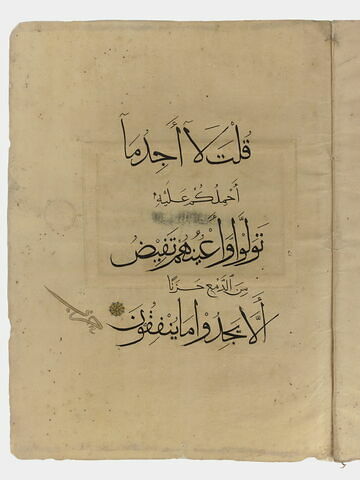 قُلْتَ لَا أَجِدُ مَا
أَحْمِلُكُمْ عَلَيْهِ
تَوَلَّوْا وَأَعْيُنُهُمْ تَفِيضُ
مِنَ ٱلدَّمْعِ حَزَنًا
أَلَّا يَجِدُوا مَا يُنْفِقُونَ